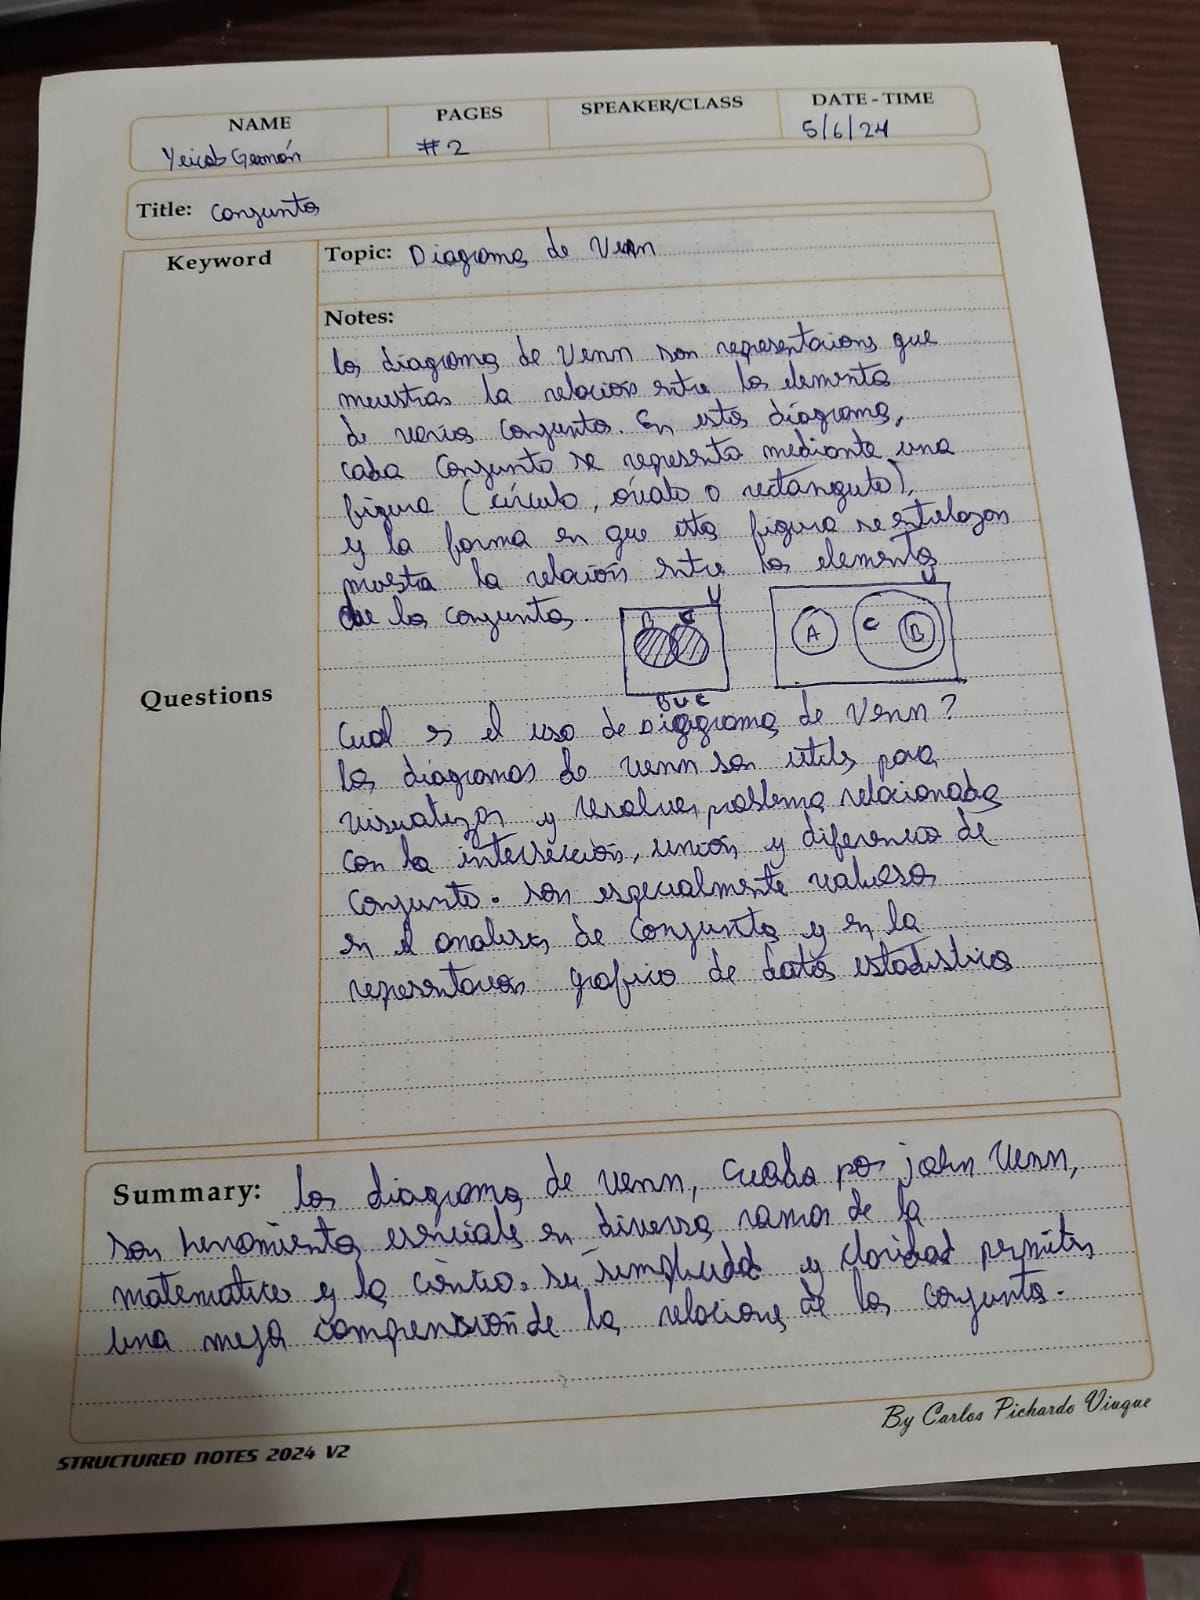 NAME
PAGES
SPEAKER/CLASS
DATE - TIME
Yeicob Germón
#2
5/6/24
Title: Conjuntos
Keyword
Topic: Diagramas de Venn
Notes:
los diagramas de Venn son representacions que
muestras la relación entre los elementos
de varios conjuntos. En estos diagramas,
cada conjunto se representa mediante una
figura (círculo, óvalo o rectángulo),
y la forma en que estas figuras se entrelazan
muestra la relación entre los elementos
de los conjuntos.
U
B C
B U C
U
A C B
Questions
Cual es el uso de Diagramas de Venn?
los diagramas de Venn son utiles para
visualizar y resolver problemas relacionados
con la intersección, unión y diferencia de
conjuntos. son especialmente valiosos
en el analisis de conjuntos y en la
representacion grafico de datos estadistico
Summary: los diagramas de Venn, creado por john Venn,
son herramientas esenciales en diversas ramas de la
matematica y la ciencia. su simplicidad y claridad permiten
una mejor comprensión de las relaciones de los conjuntos.
By Carlos Pichardo Viuque
STRUCTURED NOTES 2024 V2